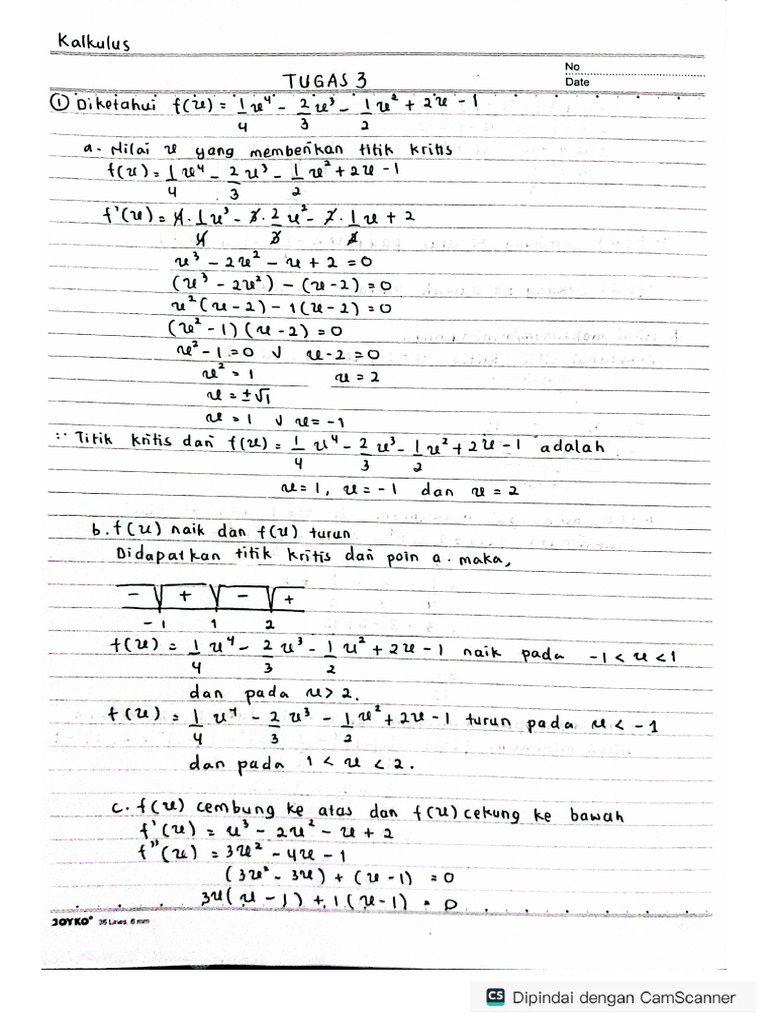 Kalkulus
No
TUGAS 3
Date
① Diketahui f(x) = 1/4 x⁴ - 2/3 x³ - 1/2 x² + 2x - 1
a. Nilai x yang memberikan titik kritis
f(x) = 1/4 x⁴ - 2/3 x³ - 1/2 x² + 2x - 1
f'(x) = 4 · 1/4 x³ - 3 · 2/3 x² - 2 · 1/2 x + 2
x³ - 2x² - x + 2 = 0
(x³ - 2x²) - (x - 2) = 0
x²(x - 2) - 1(x - 2) = 0
(x² - 1)(x - 2) = 0
x² - 1 = 0 ∨ x - 2 = 0
x² = 1 x = 2
x = ±√1
x = 1 ∨ x = -1
∵ Titik kritis dari f(x) = 1/4 x⁴ - 2/3 x³ - 1/2 x² + 2x - 1 adalah
x = 1, x = -1 dan x = 2
b. f(x) naik dan f(x) turun
Didapatkan titik kritis dari poin a. maka,
- + - +
-1 1 2
f(x) = 1/4 x⁴ - 2/3 x³ - 1/2 x² + 2x - 1 naik pada -1 < x < 1
dan pada x > 2.
f(x) = 1/4 x⁴ - 2/3 x³ - 1/2 x² + 2x - 1 turun pada x < -1
dan pada 1 < x < 2.
c. f(x) cembung ke atas dan f(x) cekung ke bawah
f'(x) = x³ - 2x² - x + 2
f"(x) = 3x² - 4x - 1
(3x² - 3x) + (x - 1) = 0
3x(x - 1) + 1(x - 1) = 0
JOYKO® 36 Lines, 6 mm
CS Dipindai dengan CamScanner